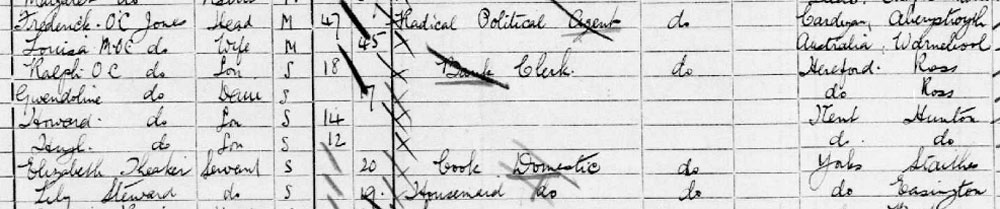 Frederick. O.C Jones Head M 47 Radical Political Agent do Cardigan, Aberystwyth
Louisa M.O.C do Wife M 45 Australia,
Ralph O.C do Son S 18 Bank Clerk. do Hereford. Ross
Gwendoline do Daur S 17 do Ross
Howard. do Son S 14 Kent Hunton
Hugh. do Son S 12 do. do
Elizabeth Theaker Servant S 20 Cook Domestic do Yorks Staithes
Lily Steward do S 19. Housemaid do do do Easington